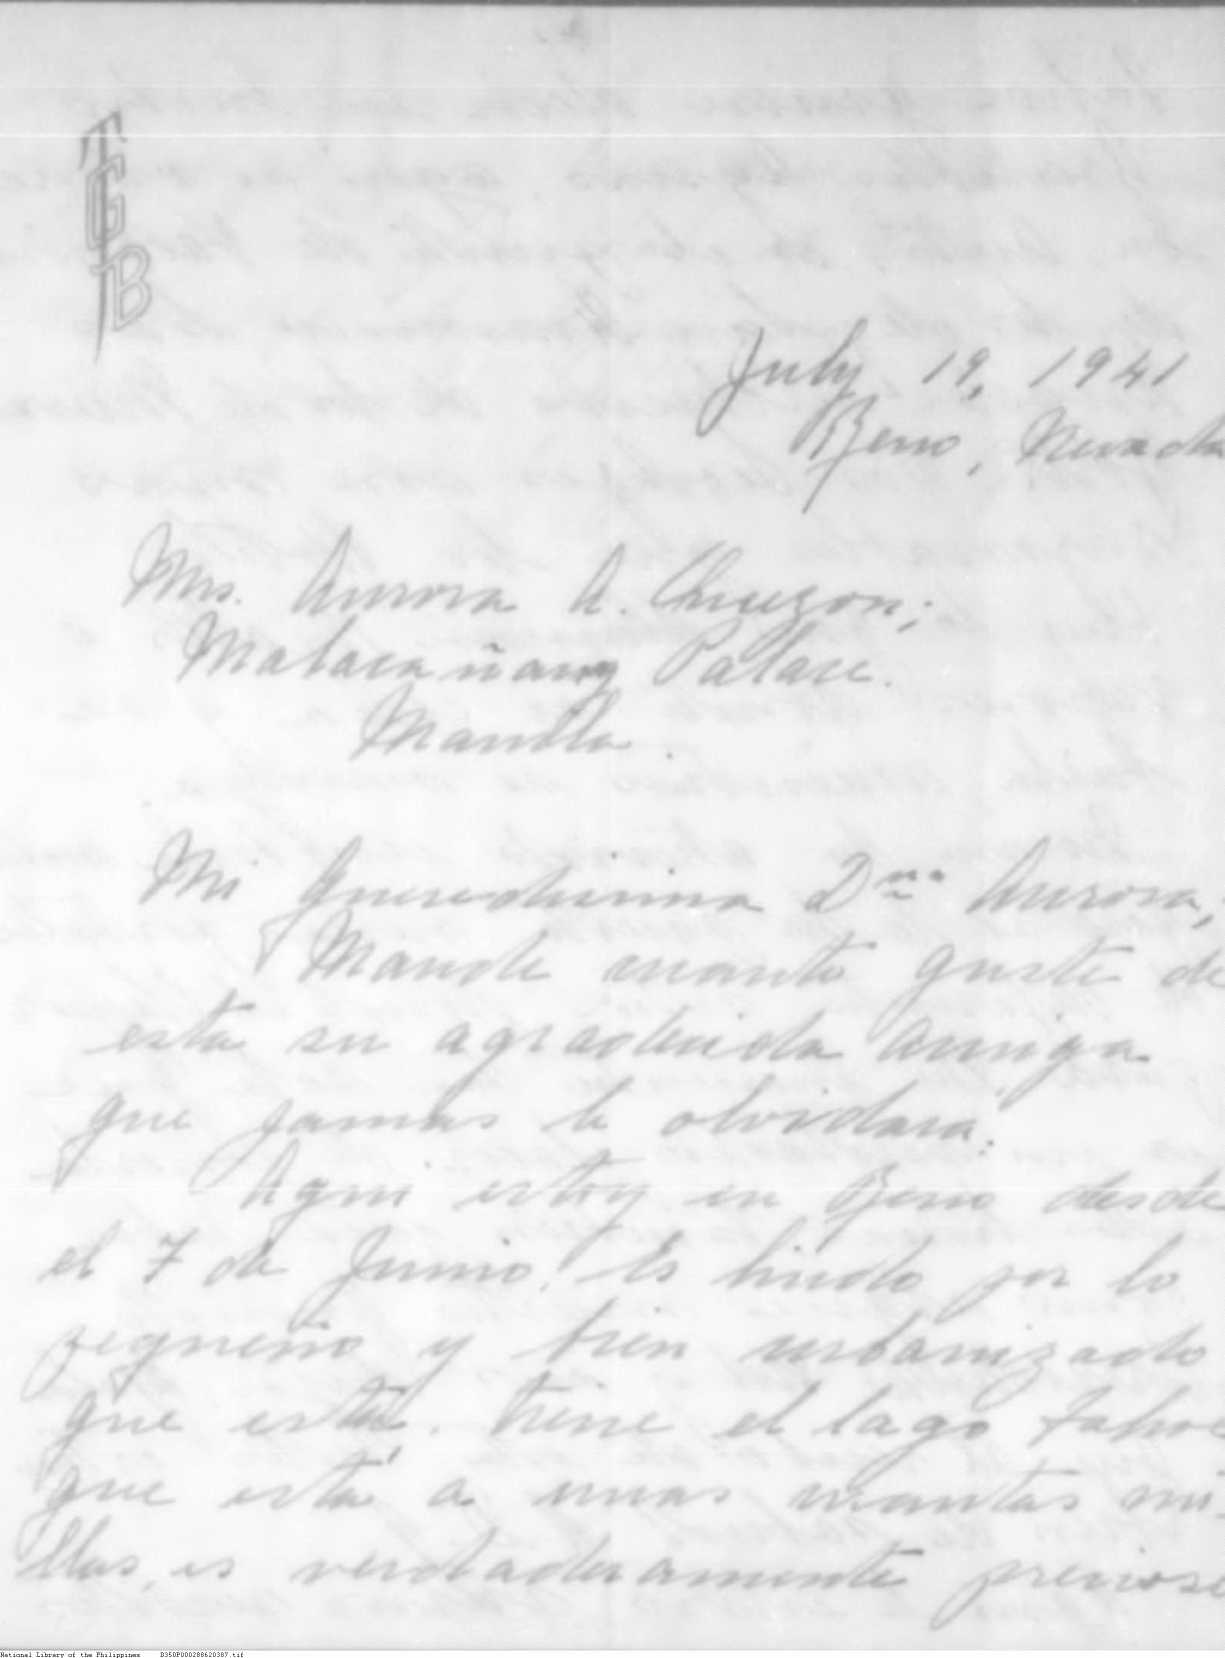 TGB
July 19, 1941
Reno, Nevada
Mrs. Aurora A. Quezon;
Malacañang Palace.
Manila.
Mi queridisima Dña. Aurora;
Mande cuanto guste de
esta su agradecida amiga
que jamas le olvidará.
Aqui estoy en Reno desde
el 7 de Junio. Es lindo por lo
pequeño y bien urbanizado
que está. Tiene el lago Tahoe
que está a unas cuantas mi-
llas, es verdaderamente precioso
National Library of the Philippines D350P000288620387.tif